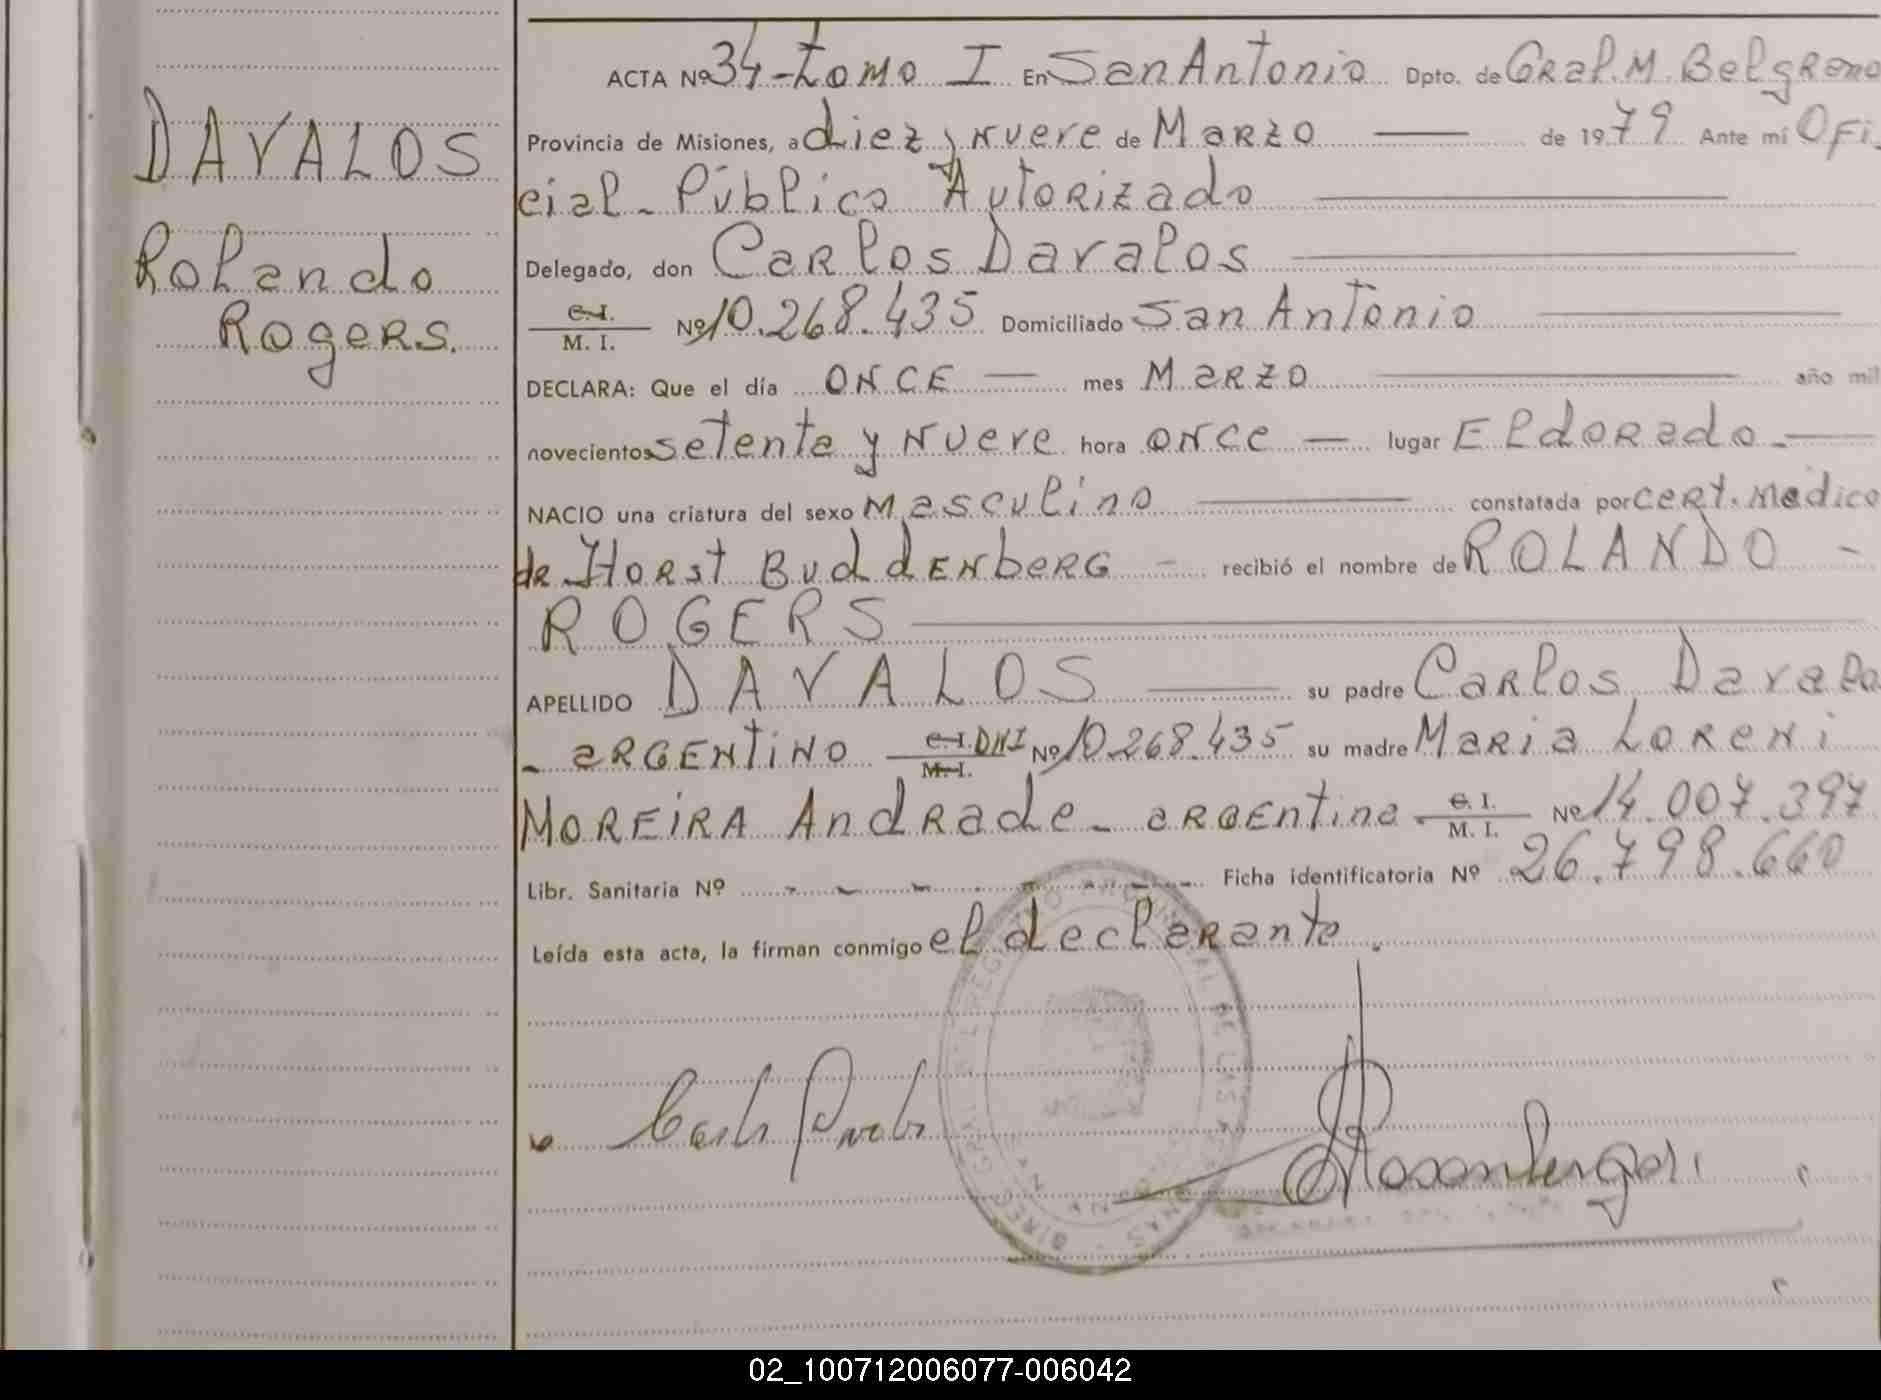 DAVALOS
Rolando
Rogers.
ACTA Nº 34 - Tomo I En San Antonio Dpto. de Gral. M. Belgrano
Provincia de Misiones, a diez y nueve de Marzo — de 1979 Ante mí Ofi-
cial - Público Autorizado
Delegado, don Carlos Davalos
C.I. M. I. Nº 10.268.435 Domiciliado San Antonio
DECLARA: Que el día ONCE — mes MARZO — año mil
novecientos setenta y nueve hora once — lugar Eldorado -
NACIO una criatura del sexo Masculino — constatada por cert. Medico
de Horst Buddenberg - recibió el nombre de ROLANDO -
ROGERS
APELLIDO DAVALOS — su padre Carlos Davalo
- argentino C.I. M.I. DNI Nº 10.268.435 su madre Maria Loreni
Moreira Andrade - argentina - C. I. M. I. Nº 14.007.397
Libr. Sanitaria Nº - - - Ficha identificatoria Nº 26.798.660
Leída esta acta, la firman conmigo el declarante.
02_100712006077-006042